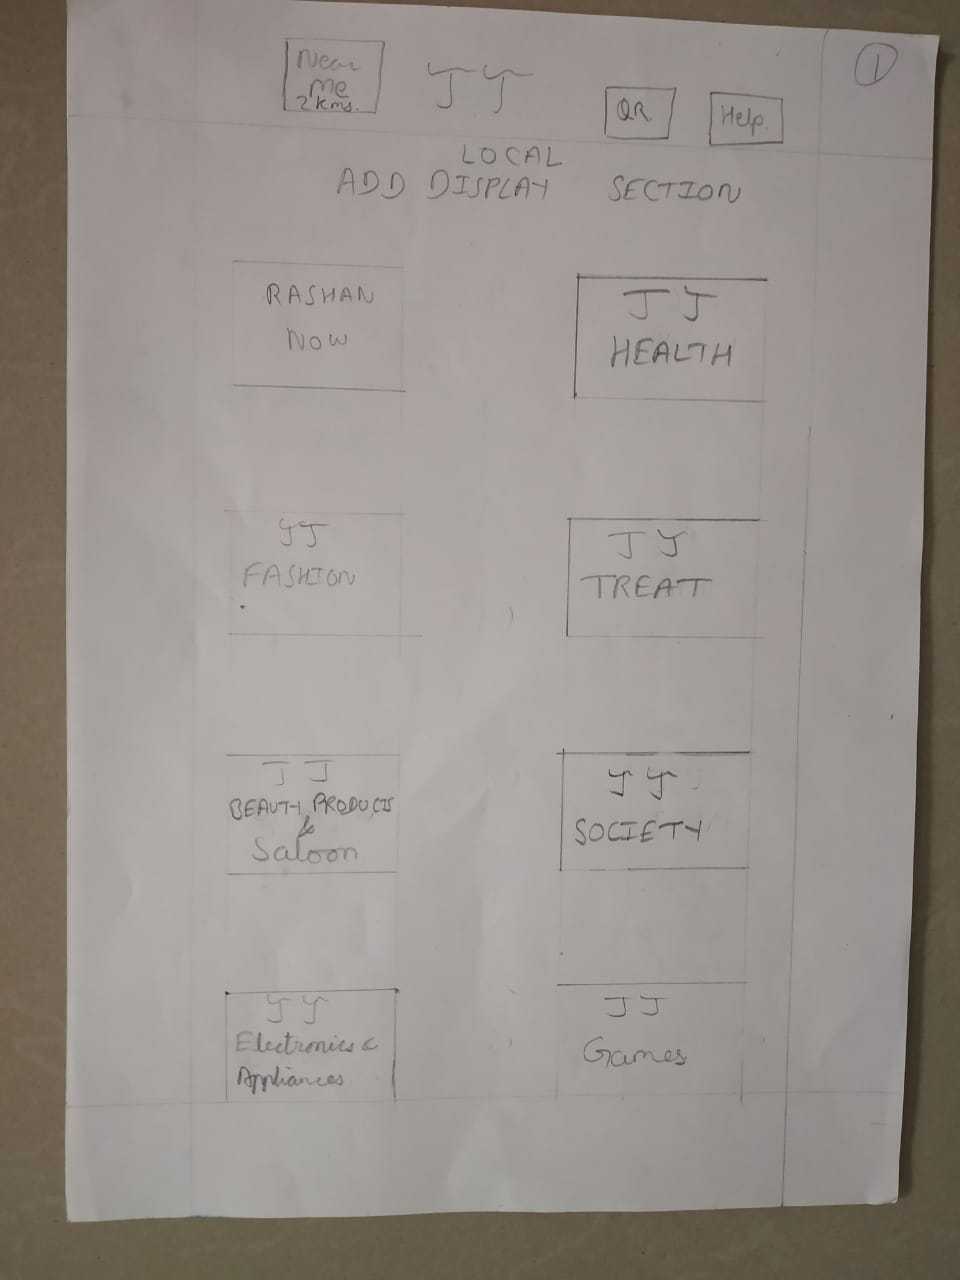 1
Near
Me
2 kms.
JJ
QR
Help.
LOCAL
ADD DISPLAY SECTION
RASHAN
NOW
JJ
HEALTH
JJ
FASHION
JJ
TREAT
JJ
BEAUTY PRODUCTS
&
Saloon
JJ
SOCIETY
JJ
Electronics &
Appliances
JJ
Games